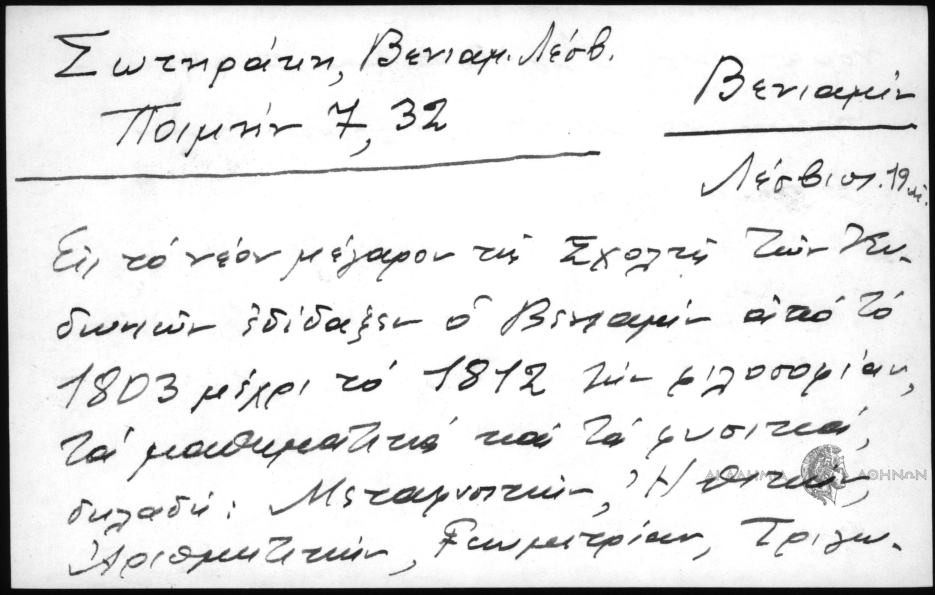 Σωτηράκη, Βενιαμ. Λέσβ.
Ποιμήν 7, 32
Βενιαμίν
Λέσβιος. 19 αἰ.
Εἰς τό νέον μέγαρον τῆς Σχολῆς τῶν Κυ-
δωνιῶν ἐδίδαξεν ὁ Βενιαμίν ἀπό τό
1803 μέχρι τό 1812 τήν φιλοσοφίαν,
τά μαθηματικά καί τά φυσικά,
δηλαδή: Μεταφυσικήν, Ἠθικήν,
Ἀριθμητικήν, Γεωμετρίαν, Τριγω-
ΑΚΑΔΗΜΙΑ ΑΘΗΝΩΝ